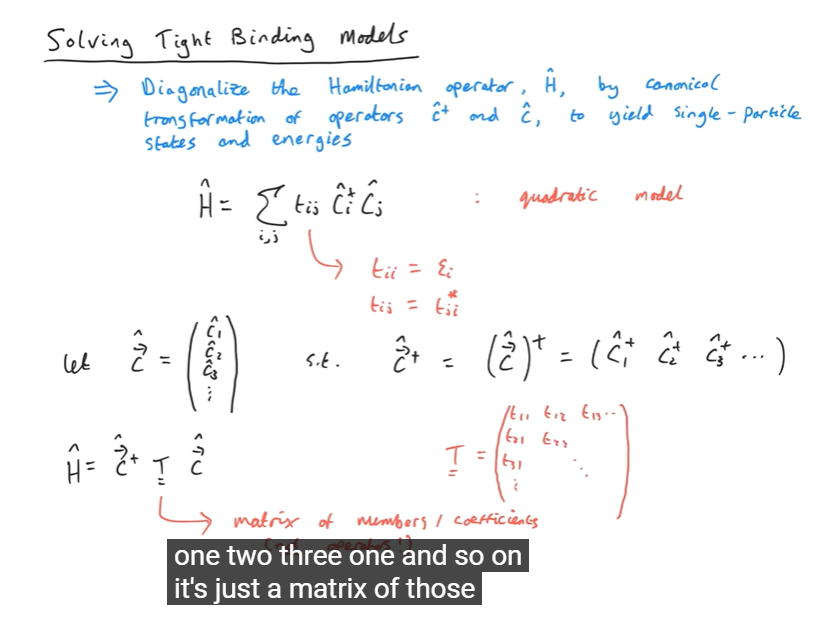 Solving Tight Binding Models
⇒ Diagonalize the Hamiltonian operator, Ĥ, by canonical
transformation of operators ĉ⁺ and ĉ, to yield single-particle
states and energies
Ĥ = Σ_{i,j} t_{ij} ĉ_i⁺ ĉ_j : quadratic model
t_{ii} = ε_i
t_{ij} = t_{ji}*
let ĉ⃗ = (ĉ₁ ĉ₂ ĉ₃ ⋮) s.t. ĉ⃗⁺ = (ĉ⃗)⁺ = (ĉ₁⁺ ĉ₂⁺ ĉ₃⁺ ...)
Ĥ = ĉ⃗⁺ T ĉ⃗
T = (t₁₁ t₁₂ t₁₃ ..
t₂₁ t₂₂
t₃₁ ⋱
⋮ )
matrix of numbers / coefficients
one two three one and so on
it's just a matrix of those